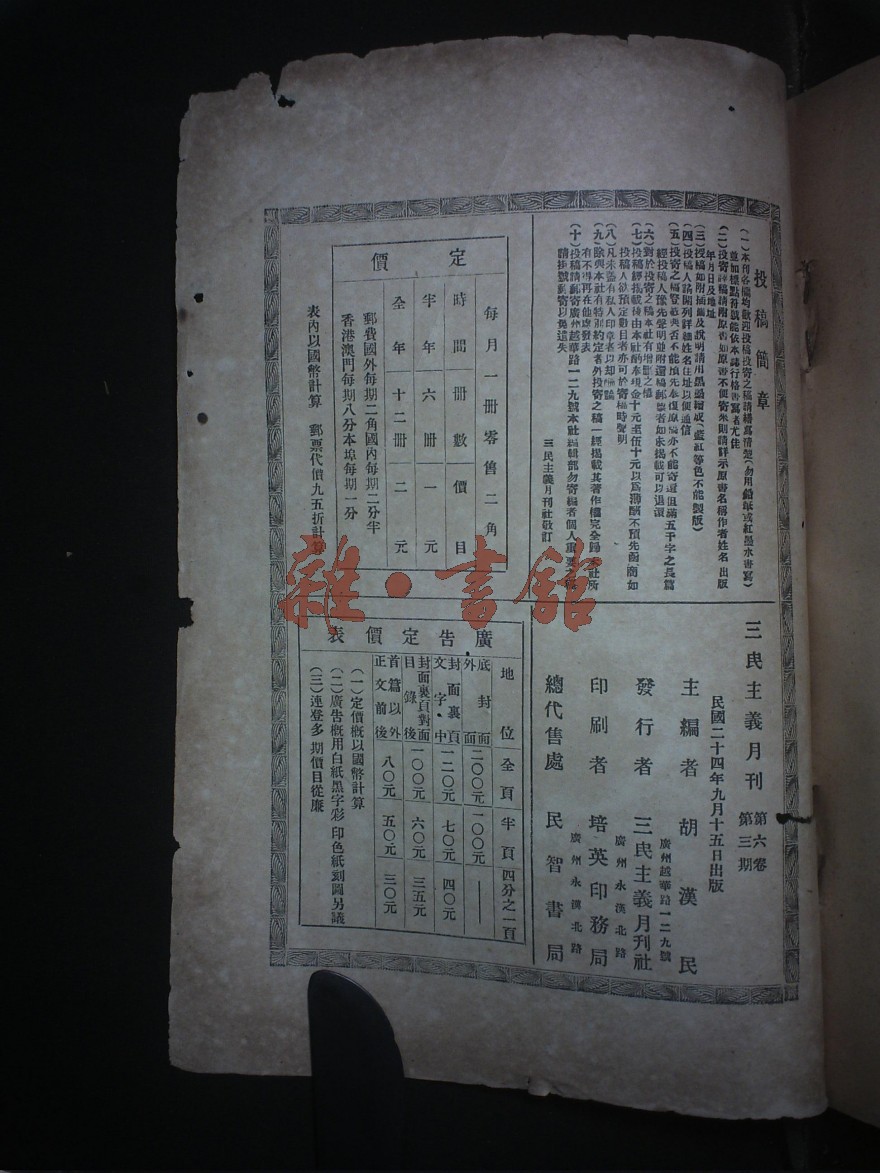 投稿簡章
（一）本刊各欄均歡迎投稿投寄之稿請繕寫清楚（勿用鉛紙或紅墨水書寫）
並加標點符號能依本誌行格書寫者尤佳
（二）投寄譯稿請附原書如原書不便寄來則請詳示原書名稱作者姓名出版
年月日及地址
（三）投稿如附插圖及說明請用黑墨繪成（藍紅等色不能製版）
（四）投稿人請開列詳細姓名住址以便通信
（五）投寄之稿登載與否不能預先奉復原稿亦不能寄還但滿五千字之長篇
經投稿人豫先聲明並附還稿郵票者如未揭載可以退還
（六）對於投寄之稿本社有增刪之權
（七）投稿經揭載後由本社酌奉現金十元至伍十元以爲薄酬不預先函商如
投稿人欲預定數目者亦可於寄稿時聲明
（八）凡未蓋有私人印章者以却酬論
（九）除與本社有特別約定者外投寄之稿一經揭載其著作權完全歸本社所
有不得再在他處發表
（十）投稿請郵寄廣州越華路一二九號本社編輯部勿寄編者個人重要之稿
請掛號郵寄以免遺失
三民主義月刊社敬訂
三民主義月刊 第六卷
第三期
民國二十四年九月十五日出版
主編者 胡漢民
廣州越華路一二九號
發行者 三民主義月刊社
廣州永漢北路
印刷者 培英印務局
廣州永漢北路
總代售處 民智書局
定價
每月一冊零售二角
時間 冊數 價目
半年 六冊 一元
全年 十二冊 二元
郵費國外每期二角國內每期二分半
香港澳門每期八分本埠每期一分
表內以國幣計算 郵票代價九五折計算
廣告定價表
地位 全頁 半頁 四分之一頁
底封面外面 二〇〇元 一〇〇元 ——
封面裏頁文字中 一二〇元 七〇元 四〇元
封面裏頁對面目錄後 一〇〇元 六〇元 三五元
首篇以外正文前後 八〇元 五〇元 三〇元
（一）定價概以國幣計算
（二）廣告概用白紙黑字彩印色紙刻圖另議
（三）連登多期價目從廉
雜·書館